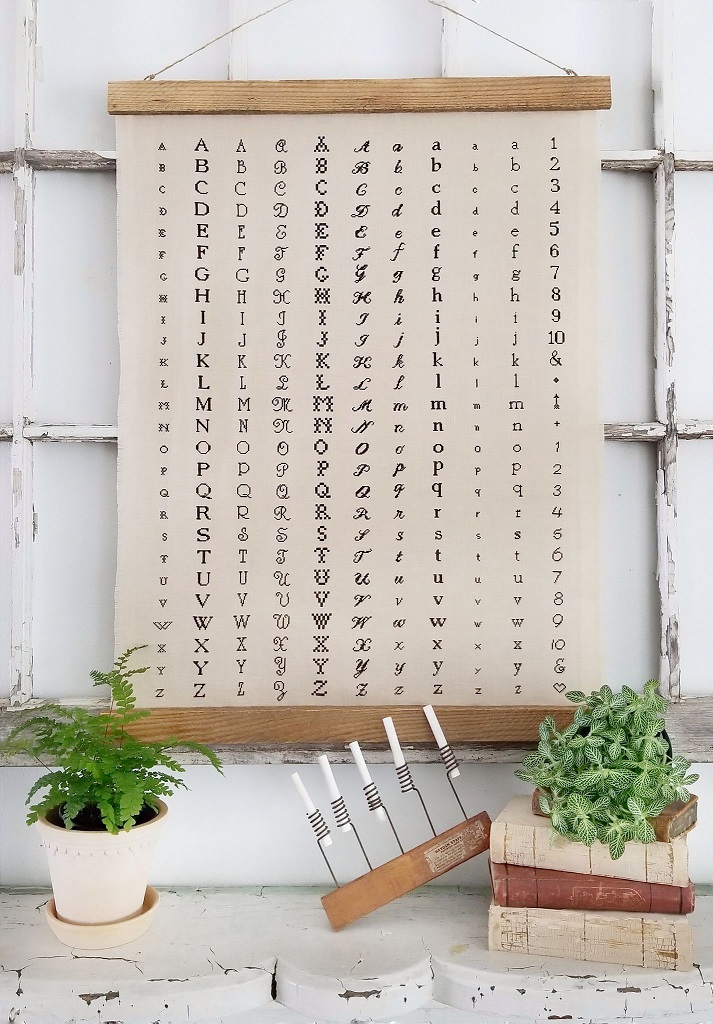 A A A A A A a a a a 1
B B B B B B b b b b 2
C C C C C C c c c c 3
D D D D D D d d d d 4
E E E E E E e e e e 5
F F F F F F f f f f 6
G G G G G G g g g g 7
H H H H H H h h h h 8
I I I I I I i i i i 9
J J J J J J j j j j 10
K K K K K K k k k k &
L L L L L L l l l l
M M M M M M m m m m
N N N N N N n n n n +
O O O O O O o o o o 1
P P P P P P p p p p 2
Q Q Q Q Q Q q q q q 3
R R R R R R r r r r 4
S S S S S S s s s s 5
T T T T T T t t t t 6
U U U U U U u u u u 7
V V V V V V v v v v 8
W W W W W W w w w w 9
X X X X X X x x x x 10
Y Y Y Y Y Y y y y y &
Z Z Z Z Z Z z z z z ♡